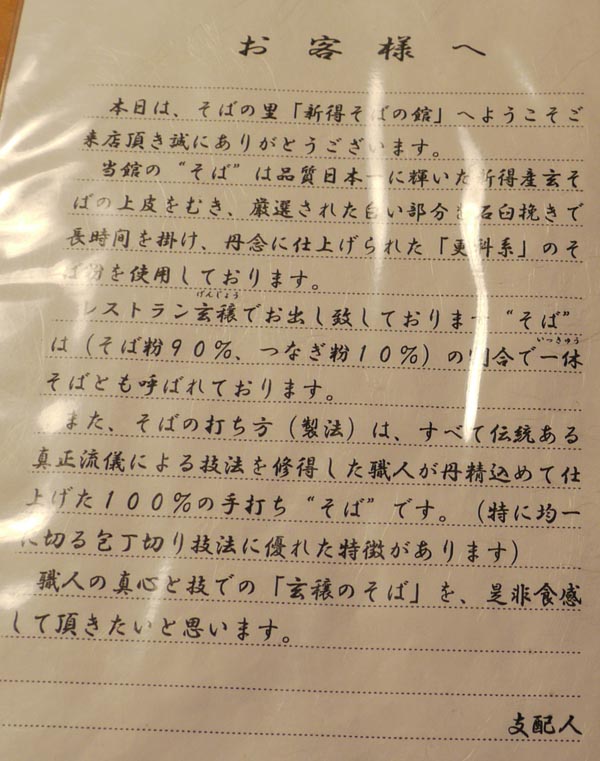 お客様へ
本日は、そばの里「新得そばの館」へようこそご
来店頂き誠にありがとうございます。
当館の“そば”は品質日本一に輝いた新得産玄そ
ばの上皮をむき、厳選された白い部分を石臼挽きで
長時間を掛け、丹念に仕上げられた「更科系」のそ
ば粉を使用しております。
レストラン玄穣でお出し致しております“そば”
げんじょう
は（そば粉90%、つなぎ粉10%）の割合で一休
いっきゅう
そばとも呼ばれております。
また、そばの打ち方（製法）は、すべて伝統ある
真正流儀による技法を修得した職人が丹精込めて仕
上げた100%の手打ち“そば”です。（特に均一
に切る包丁切り技法に優れた特徴があります）
職人の真心と技での「玄穣のそば」を、是非食感
して頂きたいと思います。
支配人